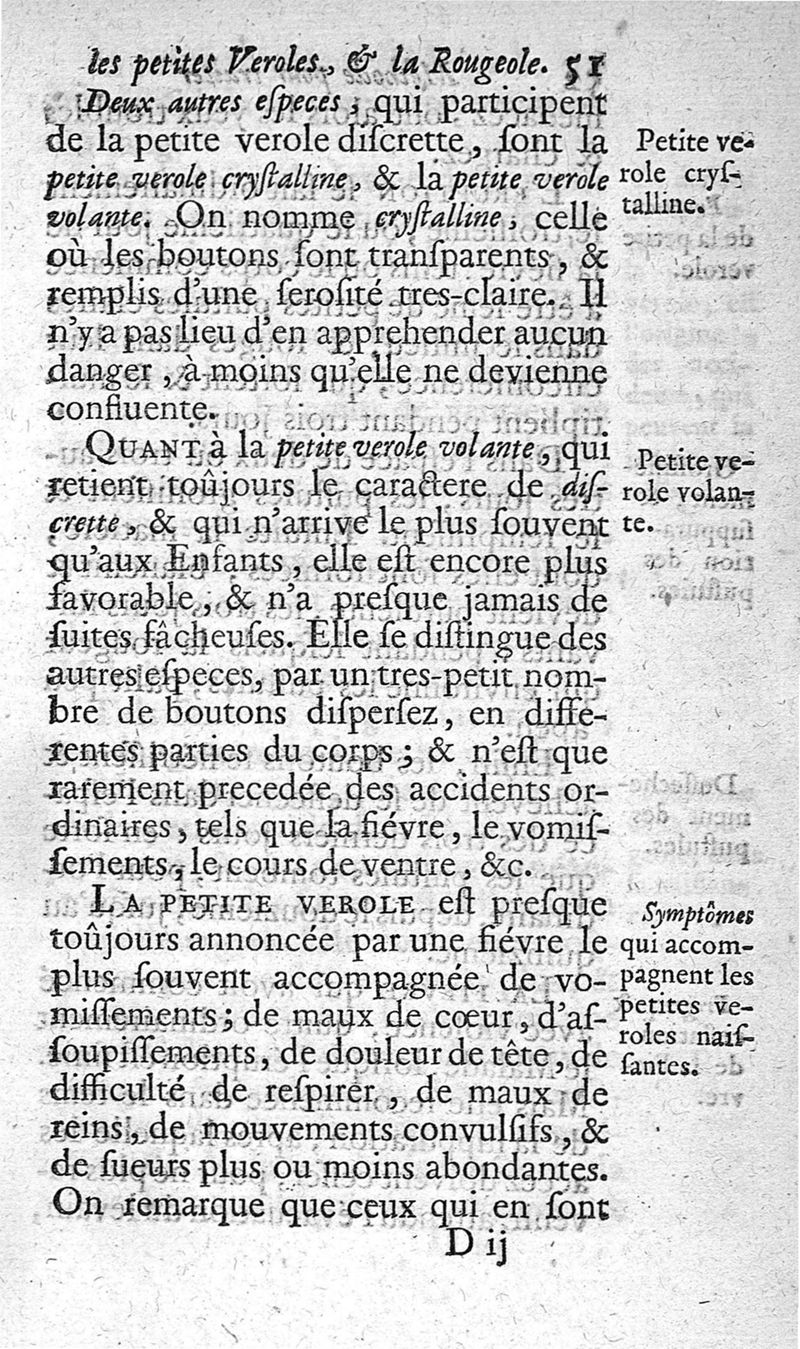 les petites Veroles, & la Rougeole. 51
Deux autres eſpeces, qui participent
de la petite verole diſcrette, ſont la
petite verole cryſtalline, & la petite verole
volante. On nomme cryſtalline, celle
où les boutons ſont tranſparents, &
remplis d'une ſeroſité tres-claire. Il
n'y a pas lieu d'en apprehender aucun
danger, à moins qu'elle ne devienne
confluente.
QUANT à la petite verole volante, qui
retient toûjours le caractere de diſ-
crette, & qui n'arrive le plus ſouvent
qu'aux Enfants, elle eſt encore plus
favorable, & n'a preſque jamais de
ſuites fâcheuſes. Elle ſe diſtingue des
autres eſpeces, par un tres-petit nom-
bre de boutons diſperſez, en diffe-
rentes parties du corps; & n'eſt que
rarement precedée des accidents or-
dinaires, tels que la fiévre, le vomiſ-
ſements, le cours de ventre, &c.
LA PETITE VEROLE eſt preſque
toûjours annoncée par une fiévre le
plus ſouvent accompagnée de vo-
miſſements; de maux de cœur, d'aſ-
ſoupiſſements, de douleur de tête, de
difficulté de reſpirer, de maux de
reins, de mouvements convulſifs, &
de ſueurs plus ou moins abondantes.
On remarque que ceux qui en ſont
D ij
Petite ve-
role cryſ-
talline.
Petite ve-
role volan-
te.
Symptômes
qui accom-
pagnent les
petites ve-
roles naiſ-
ſantes.